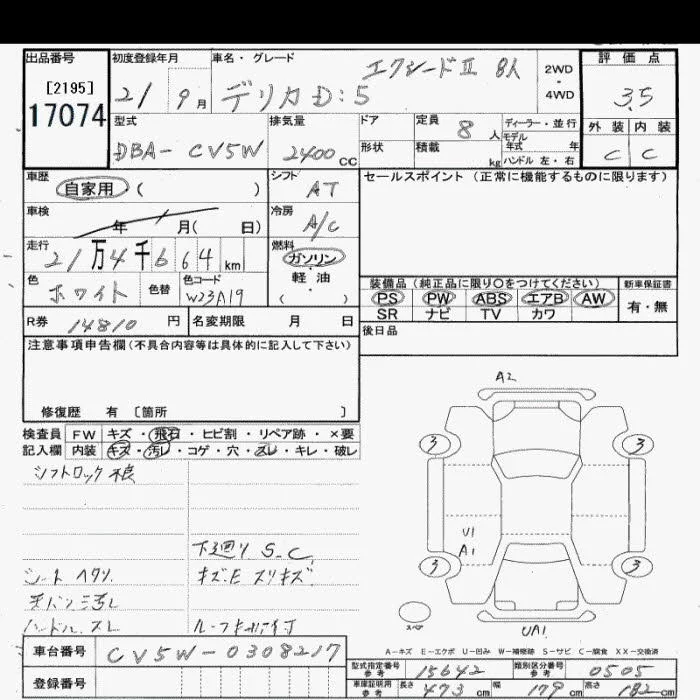 出品番号 初度登録年月 車名・グレード エクシードⅡ 8人 2WD 評価点
[2195] 21 9月 デリカD:5 4WD 3.5
17074 型式 排気量 ドア 定員 8人 ディーラー・並行 外装 内装
モデル
DBA- CV5W 2400CC 形状 積載 kg 年式 年 C C
ハンドル 左・右
車歴 自家用 ( ) シフト AT セールスポイント (正常に機能するものに限ります)
車検 年 月( 日) 冷房 A/C
走行 21万4千664km 燃料 ガソリン・軽油 ( )
色 ホワイト 色替 色コード W23A19
装備品 (純正品に限り○をつけてください) 新車保証書
PS PW ABS エアB AW 有・無
SR ナビ TV カワ
R券 14810円 名変期限 月 日 後日品
注意事項申告欄(不具合内容等は具体的に記入して下さい)
修復歴 有 〔箇所 〕
検査員 FW キズ・飛石・ヒビ割・リペア跡・×要
記入欄 内装 キズ・汚レ・コゲ・穴・スレ・キレ・破レ
シフトロック不良
下廻り S.C.
シート ヘタリ. キズ.E スリキズ
ハンドル.スレ ルーフキャリア付
A2
3 3
U1
A1
3 3
スペア
UA1
A-キズ E-エクボ U-凹み W-補修跡 S-サビ C-腐食 XX-交換済
車台番号 CV5W-0308217
登録番号
型式指定番号 参考 15642 類別区分番号 参考 0505
車庫証明用 参考 長さ 473cm 幅 179cm 高さ 182cm